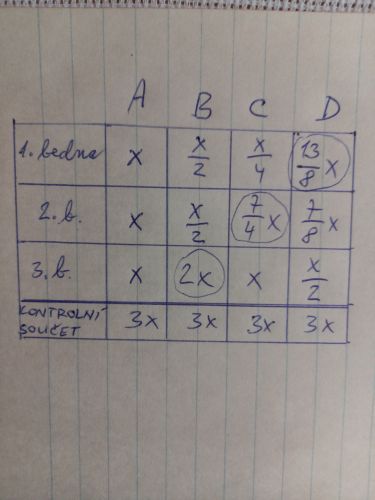 A B C D
1. bedna x x/2 x/4 13/8 x
2. b. x x/2 7/4 x 7/8 x
3. b. x 2x x x/2
KONTROLNÍ SOUČET 3x 3x 3x 3x